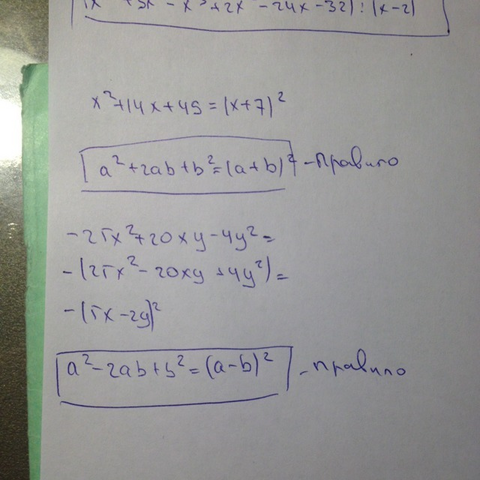 x²+14x+49=(x+7)²
a²+2ab+b²=(a+b)² - правило
-25x²+20xy-4y²=
-(25x²-20xy+4y²)=
-(5x-2y)²
a²-2ab+b²=(a-b)² - правило